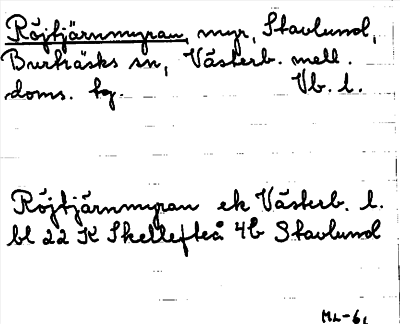 Röjtjärnmyran, myr, Stavlund,
Burträsks sn, Västerb. mell.
doms. tg. Vb. l.
Röjtjärnmyran ek Västerb. l.
bl 22 K Skellefteå 4b Stavlund